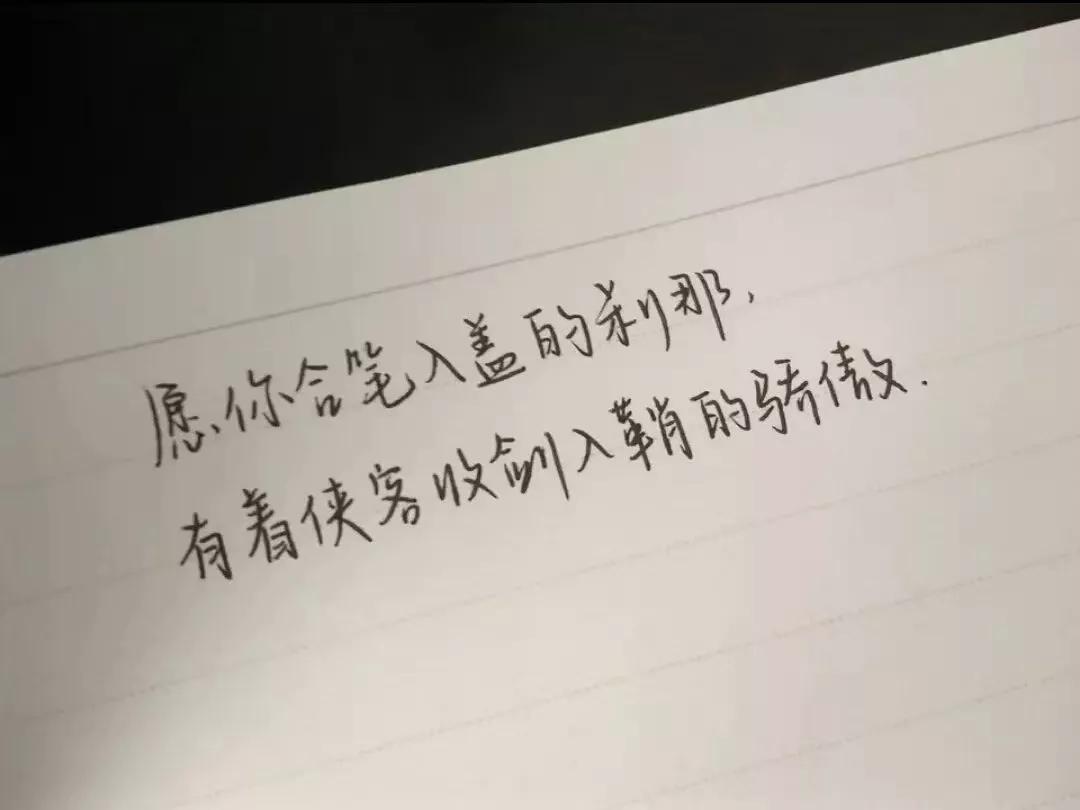 愿你合笔入盖的刹那，
有着侠客收剑入鞘的骄傲.